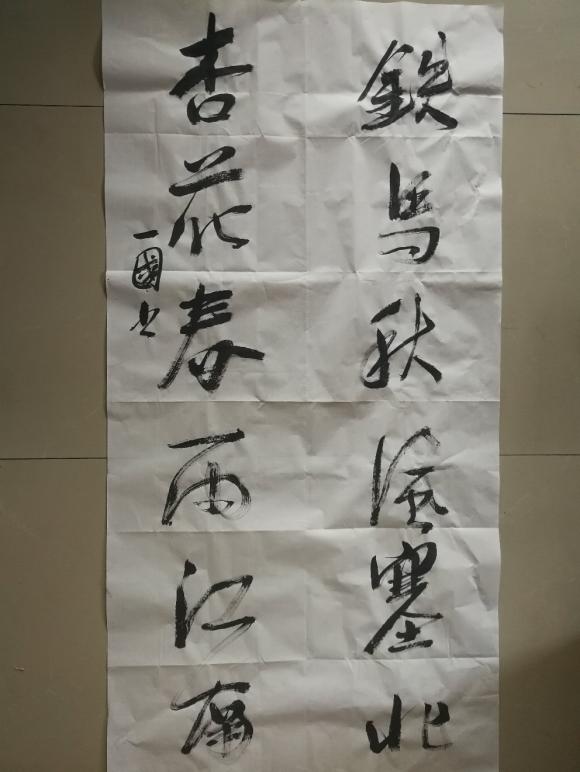 鐵馬秋風塞北
杏花春雨江南
一國书